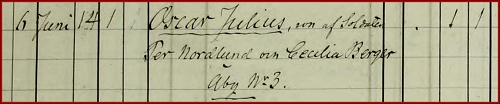 6 Juni 14 1 Oscar Julius, son af Soldaten 1 1
Per Nordlund o in Cecilia Berger
Åby No 3.